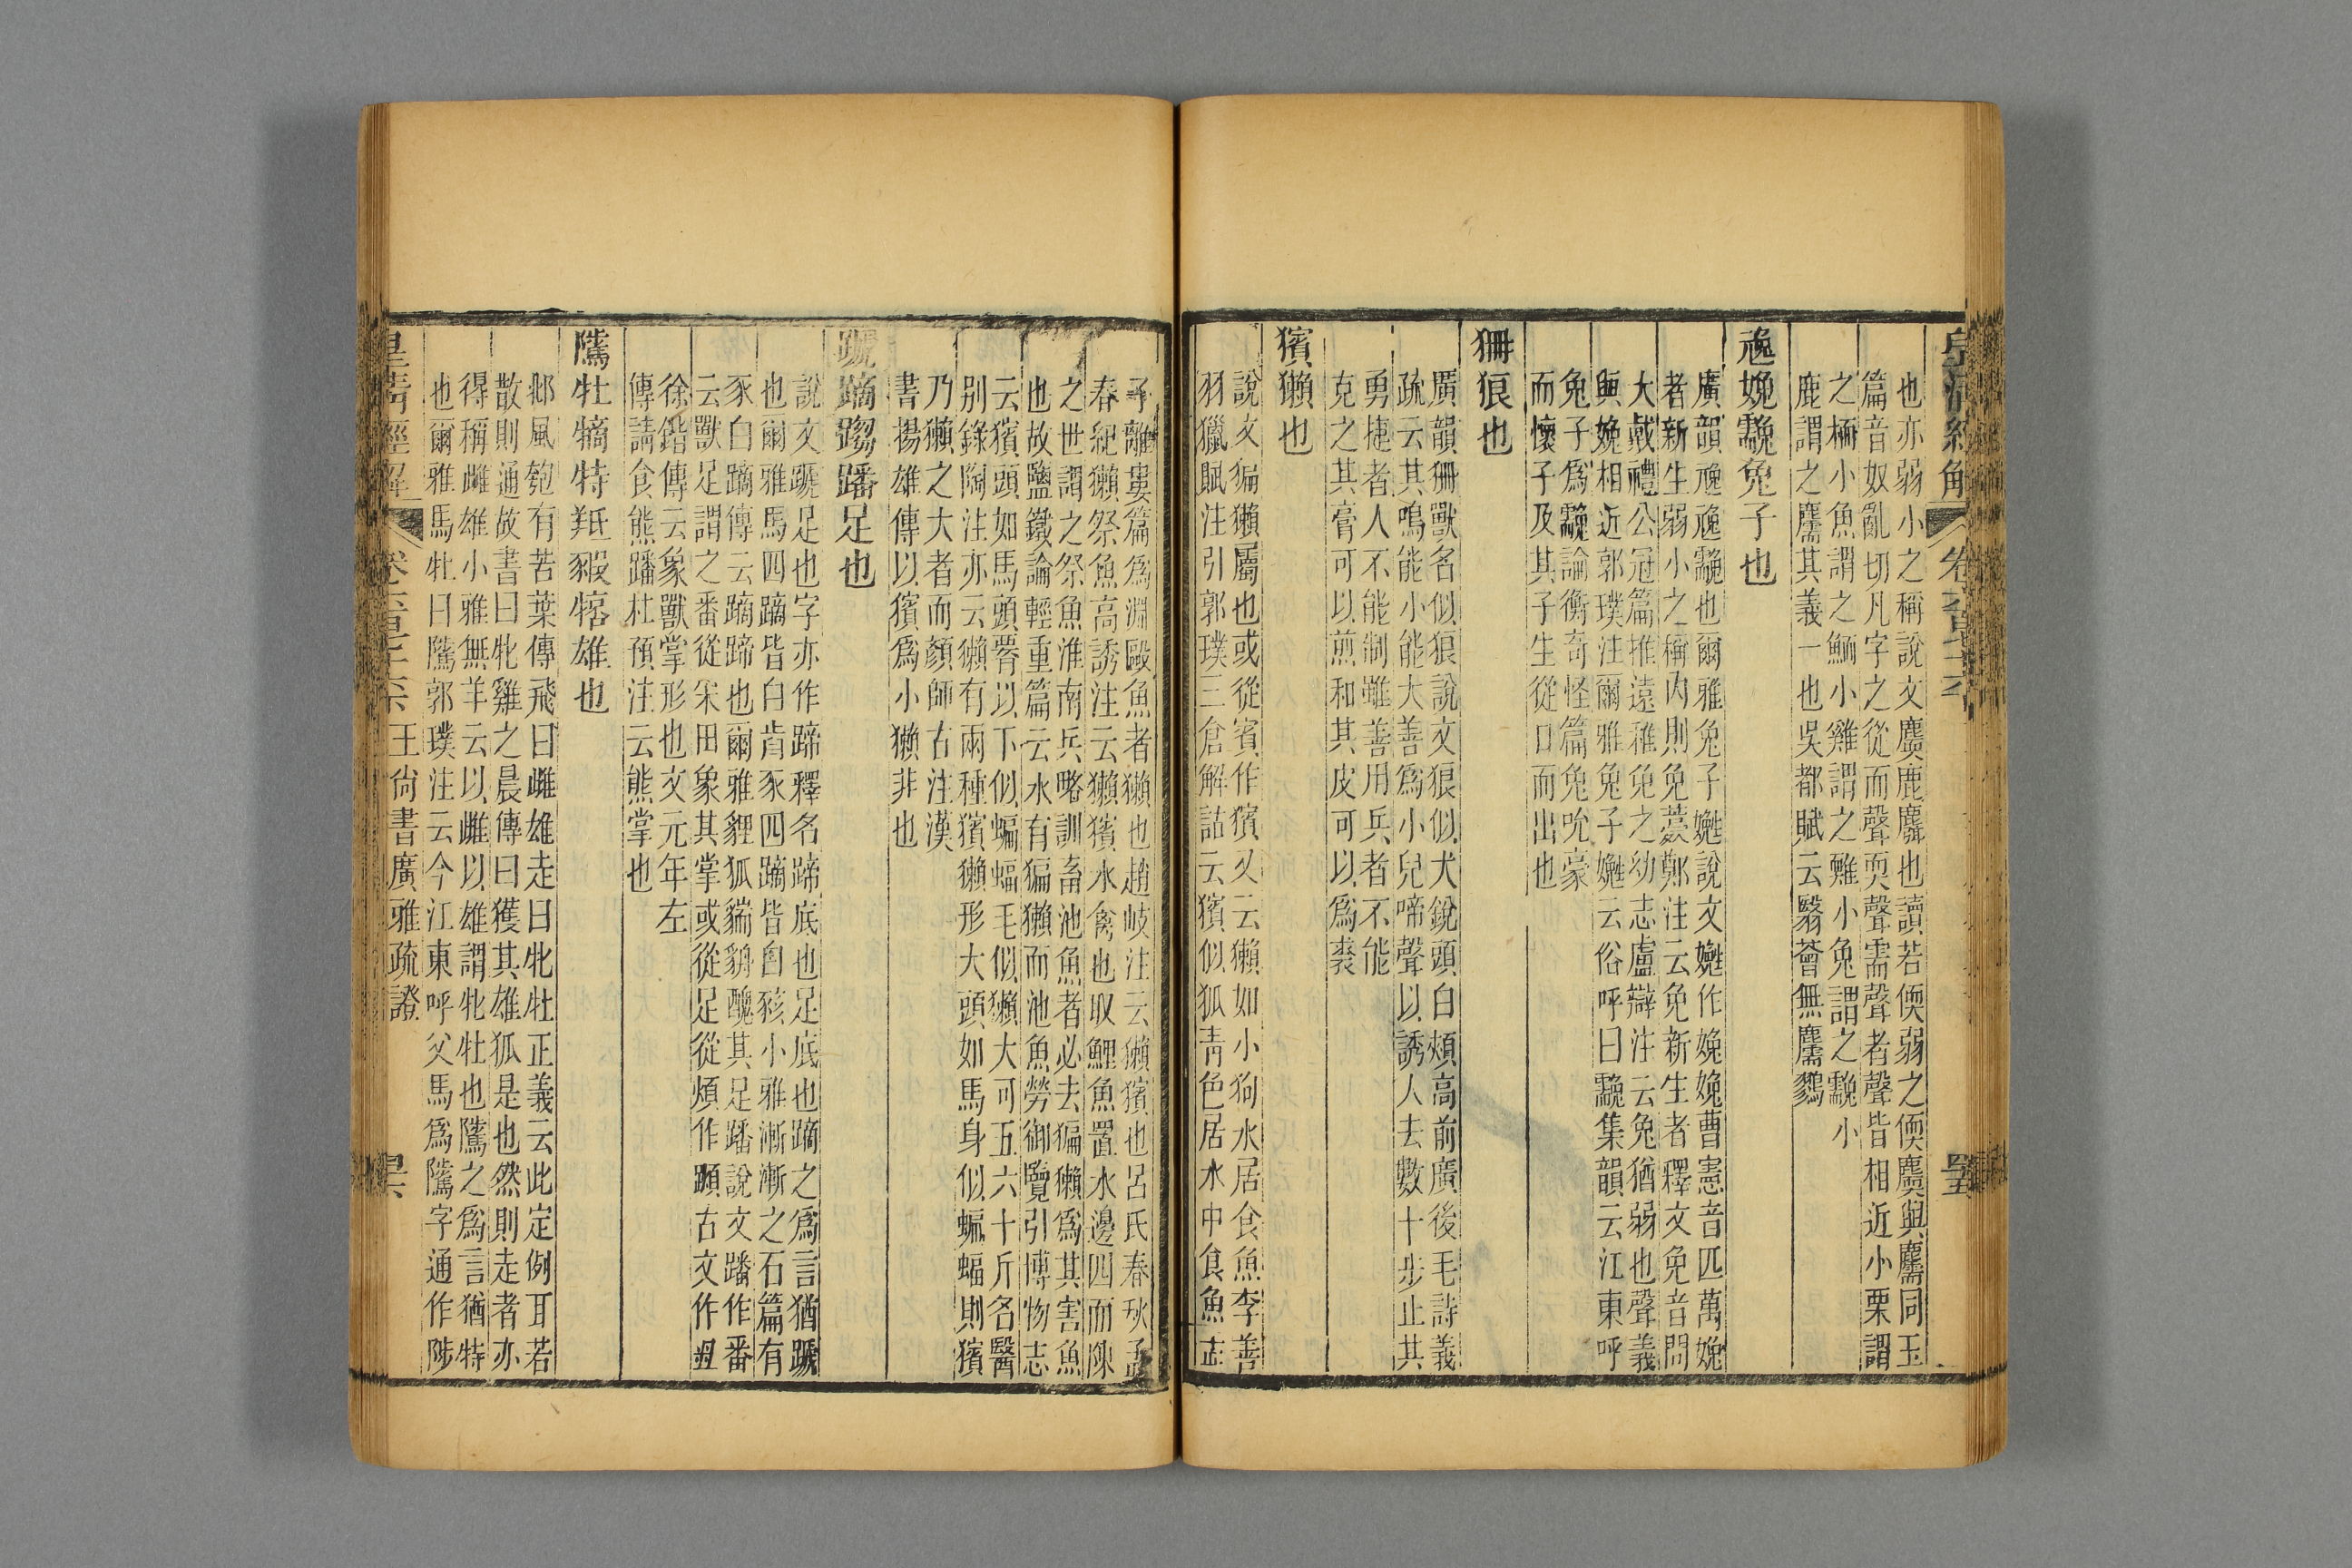 皇清經解 卷六百七十六
也亦弱小之稱說文麌鹿麛也讀若偄弱之偄麌與麛同玉
篇音奴亂切凡字之從而聲耎聲需聲者聲皆相近小栗謂
之栭小魚謂之鮞小雞謂之䎡小兔謂之䨲小
鹿謂之麛其義一也吳都賦云翳薈無麛鷚
㕙娩䨲兔子也
者新生弱小之稱內則免薧鄭注云免新生者釋文免音問
大戴禮公冠篇推遠稚免之幼志盧辯注云免猶弱也聲義
與娩相近郭璞注爾雅兔子嬎云俗呼曰䨲集韻云江東呼
兔子為䨲論衡奇怪篇兔吮豪
而懷子及其子生從口而出也
狦狼也
廣韻狦獸名似狼說文狼似犬銳頭白頰高前廣後毛詩義
疏云其鳴能小能大善爲小兒啼聲以誘人去數十步止其
勇捷者人不能制雖善用兵者不能
克之其膏可以煎和其皮可以爲裘
獱獺也
說文猵獺屬也或從賓作獱又云獺如小狗水居食魚李善
羽獵賦注引郭璞三倉解詁云獱似狐青色居水中食魚孟
子離婁篇爲淵敺魚者獺也趙岐注云獺獱也呂氏春秋孟
春紀獺祭魚高誘注云獺獱水禽也取鯉魚置水邊四面陳
之世謂之祭魚淮南兵略訓畜池魚者必去猵獺爲其害魚
也故鹽鐵論輕重篇云水有猵獺而池魚勞御覽引博物志
云獱頭如馬頭署以下似蝙蝠毛似獺大可五六十斤名醫
別錄陶注亦云獺有兩種獱獺形大頭如馬身似蝙蝠則獱
乃獺之大者而顏師古注漢
書揚雄傳以獱爲小獺非也
蹏蹢蹳蹯足也
說文蹏足也字亦作蹄釋名蹄底也足底也蹢之爲言猶蹏
也爾雅馬四蹢皆白首豕四蹢皆白豥小雅漸漸之石篇有
豕白蹢傳云蹢蹄也爾雅貍狐貒貈醜其足蹯說文蹯作番
云獸足謂之番從釆田象其掌或從足從煩作䫶古文作𠂩
徐鍇傳云象獸掌形也文元年左
傳請食熊蹯杜預注云熊掌也
騭牡犗特羝豭㹊雄也
邶風匏有苦葉傳飛曰雌雄走曰牝牡正義云此定例耳若
散則通故書曰牝雞之晨傳曰獲其雄狐是也然則走者亦
得稱雌雄小雅無羊云以雌以雄謂牝牡也騭之爲言猶特
也爾雅馬牡曰騭郭璞注云今江東呼父馬爲騭字通作陟
皇清經解 卷六百七十六 王尚書廣雅疏證